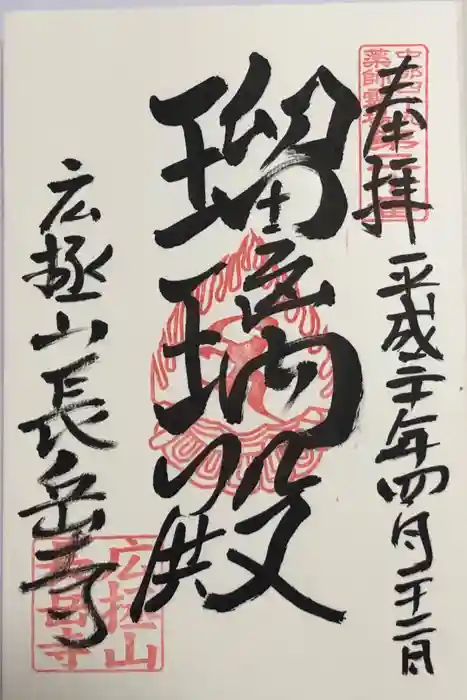 奉拝
平成二十年四月二十二日
瑠璃殿
広拯山長岳寺
広拯山
長岳寺